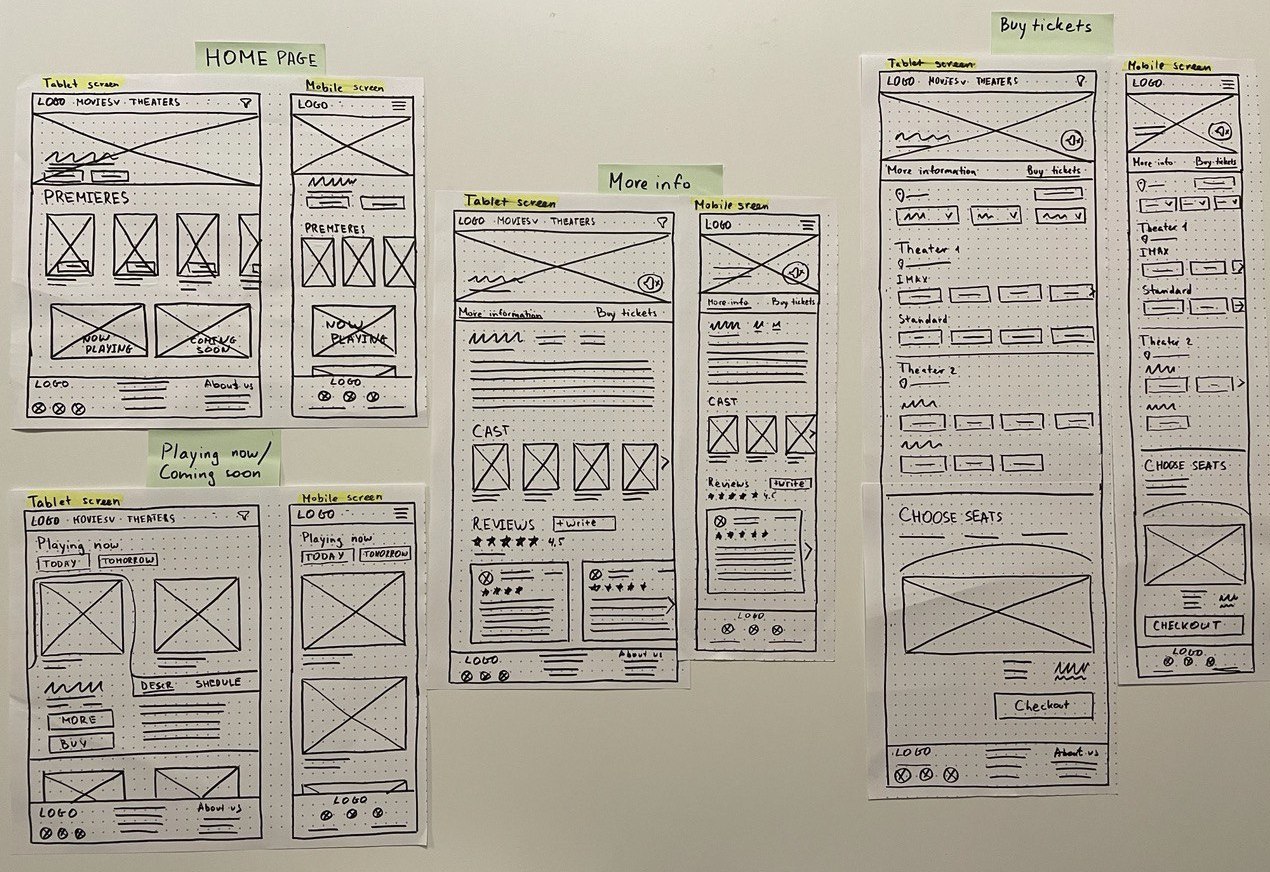 HOME PAGE
Tablet screen
LOGO · MOVIES∨ · THEATERS
PREMIERES
NOW
PLAYING
COMING
SOON
LOGO
About us
Mobile screen
LOGO
PREMIERES
NOW
PLAYING
LOGO
Playing now/
Coming soon
Tablet screen
LOGO · MOVIES∨ · THEATERS
Playing now
TODAY
TOMORROW
DESCR
SHEDULE
MORE
BUY
LOGO
About us
Mobile screen
LOGO
Playing now
TODAY
TOMORROW
LOGO
More info
Tablet screen
LOGO · MOVIES∨ · THEATERS
More information
Buy tickets
CAST
REVIEWS
+ Write
4,5
LOGO
About us
Mobile sreen
LOGO
More info
Buy tickets
CAST
Reviews
+Write
4,5
LOGO
Buy tickets
Tablet screen
LOGO · MOVIES∨ · THEATERS
More information
Buy tickets
Theater 1
IMAX
Standard
Theater 2
CHOOSE SEATS
Checkout
LOGO
About us
Mobile screen
LOGO
More info
Buy tickets
Theater 1
IMAX
Standard
Theater 2
CHOOSE SEATS
CHECKOUT
LOGO